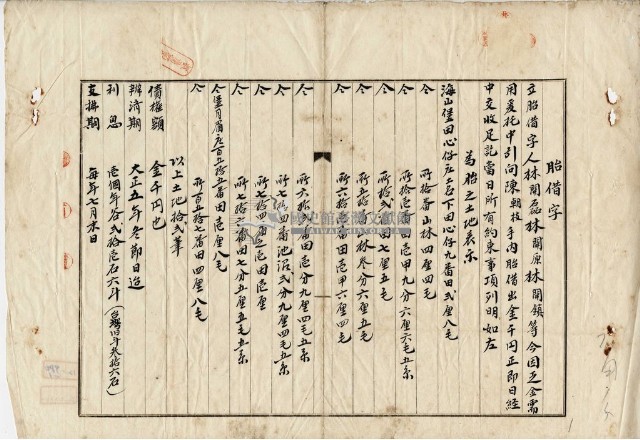 胎借字
立胎借字人林開磊林開原林開領等今因乏金需
用爰托中引向陳朝枝手內胎借出金千円正即日經
中交收足訖當日所有約束事項列明如左
為胎之土地表示
海山堡田心仔庄土名下田心仔九番田弐厘八毛
仝 所拾番山林四厘四毛
仝 所拾壱番田壱甲九分六厘六毛五糸
仝 林參分六厘五毛
仝 所六拾 番田壱甲六厘四毛
仝 所六拾 九厘四毛五糸
仝 所七拾四番池沼弐分九厘四毛五糸
仝 所七拾四番 田壱厘
仝 所七拾 番田七分五厘五毛
仝堡月眉庄百五拾五番田壱厘八毛
仝 所百五拾七番田四厘八毛
以上土地拾弐筆
債權額 金千円也
辨済期 大正五年冬節日迄
利息 壱個年谷弐拾壱石六斗(台灣旧斗參拾六石)
支拂期 每年七月末日
國史館臺灣文獻館